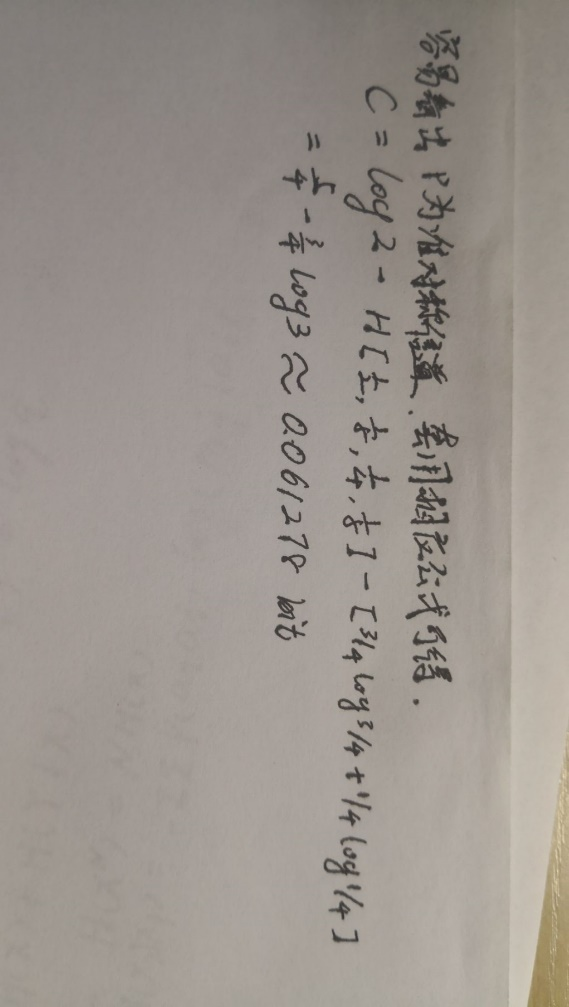 容易看出 P为准对称信道, 套用相应公式可得.
C = log2 - H[½, ⅛, ¼, ⅛] - [3/4 log 3/4 + 1/4 log 1/4]
= 5/4 - 3/4 log3 ≈ 0.061278 bit